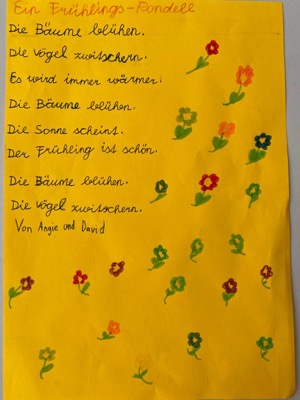 Ein Frühlings-Rondell
Die Bäume blühen.
Die Vögel zwitschern.
Es wird immer wärmer.
Die Bäume blühen.
Die Sonne scheint.
Der Frühling ist schön.
Die Bäume blühen.
Die Vögel zwitschern.
Von Angie und David